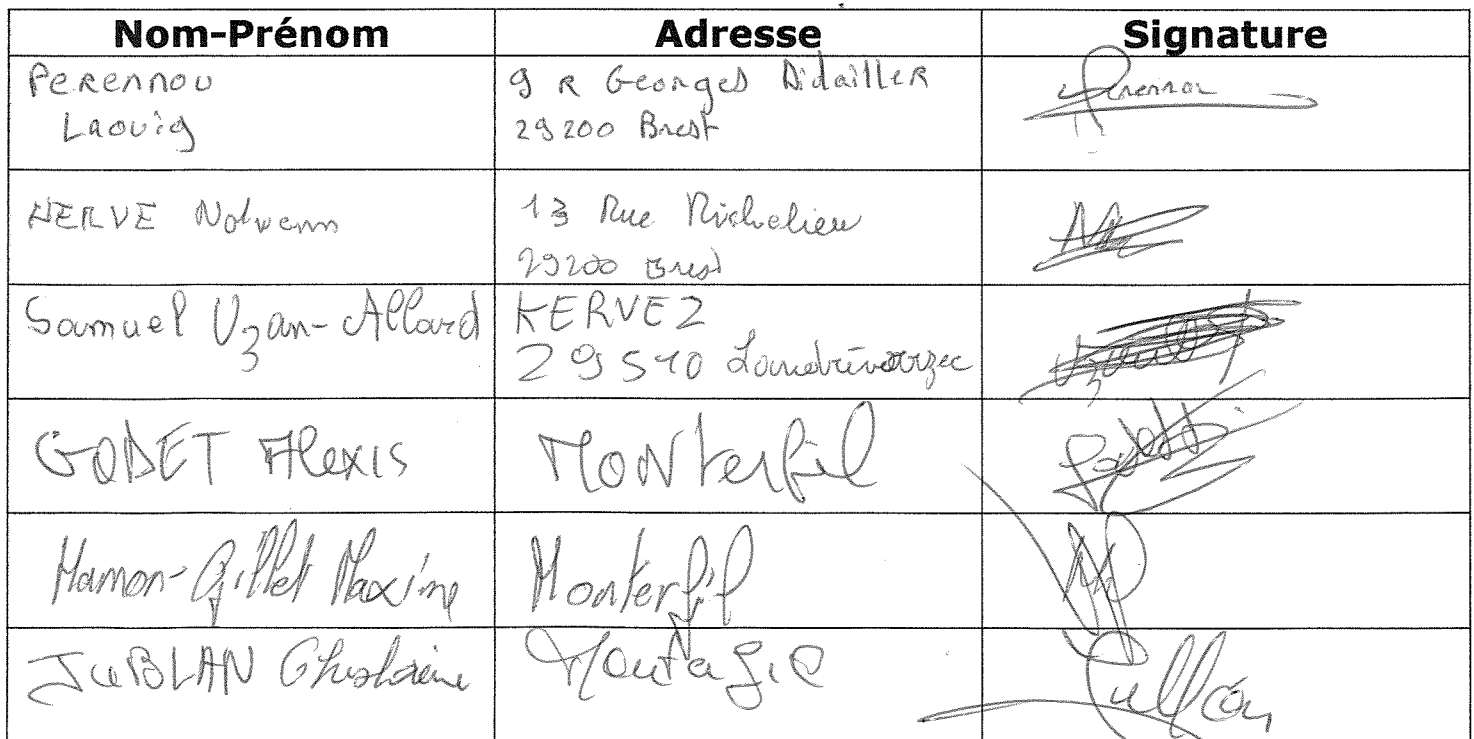 Nom-Prénom Adresse Signature
Perennou 9 R Georges Didailler Perennou
Laouig 29200 Brest
HERVE Nolwenn 13 Rue Richelieu
29200 Brest
Samuel Uzan-Allard KERVEZ
29510 Landrévarzec
GODET Alexis Monterfil Godet
Hamon-Gillet Maxime Monterfil
JUBLAN Ghislaine